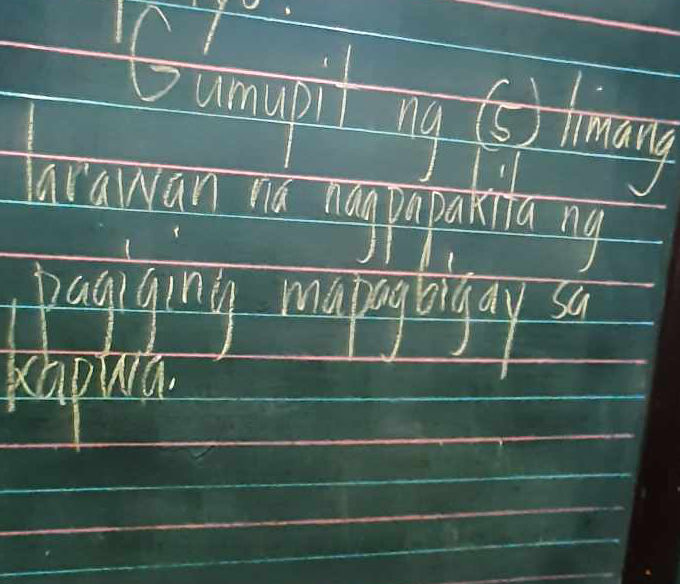 Gumupit ng (5) limang
larawan na nagpapakita ng
pagiging mapagbigay sa
kapwa.